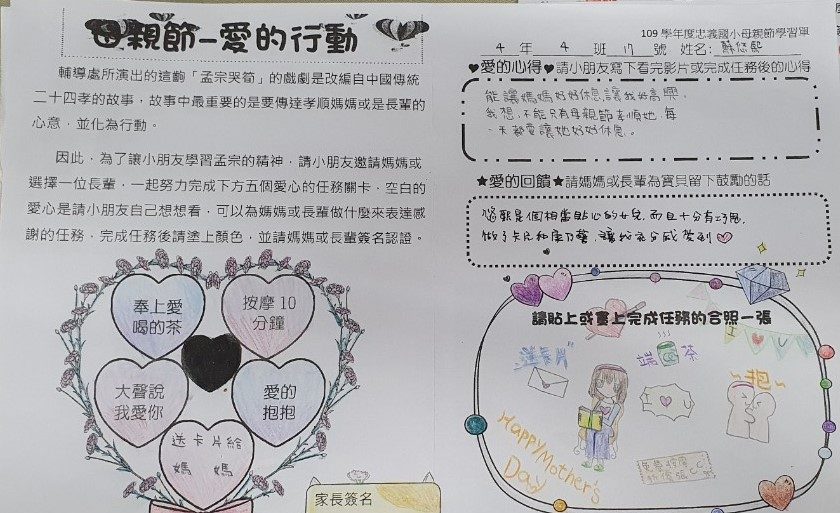 母親節–愛的行動
輔導處所演出的這齣「孟宗哭筍」的戲劇是改編自中國傳統
二十四孝的故事，故事中最重要的是要傳達孝順媽媽或是長輩的
心意，並化為行動。
因此，為了讓小朋友學習孟宗的精神，請小朋友邀請媽媽或
選擇一位長輩，一起努力完成下方五個愛心的任務關卡，空白的
愛心是請小朋友自己想想看，可以為媽媽或長輩做什麼來表達感
謝的任務，完成任務後請塗上顏色，並請媽媽或長輩簽名認證。
奉上愛
喝的茶
按摩 10
分鐘
大聲說
我愛你
愛的
抱抱
送卡片給
媽 媽
家長簽名
109 學年度忠義國小母親節學習單
4 年 4 班 17 號 姓名: 蘇
♥愛的心得♥請小朋友寫下看完影片或完成任務後的心得
能讓媽媽好好休息,讓我好高興,
我想,不能只有母親節孝順她,每
一天都要讓她好好休息。
★愛的回饋★請媽媽或長輩為寶貝留下鼓勵的話
是個相當貼心的女兒,而且十分有巧思,
做了卡片和,讓我充分感受到♡
請貼上或畫上完成任務的合照一張
I ♥ U
送卡片
端 茶
~抱~
I ♥ U
Happy Mother's
Day